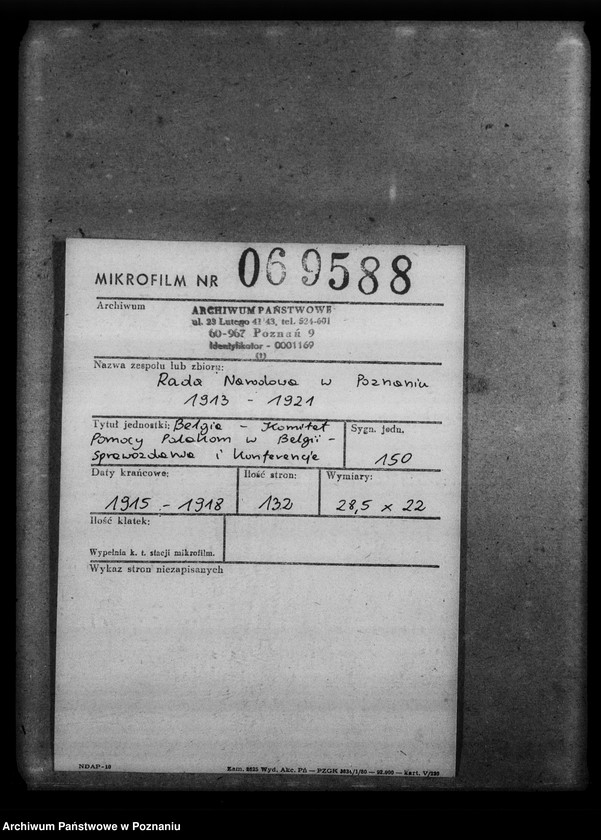 MIKROFILM NR 069588
Archiwum
ARCHIWUM PAŃSTWOWE
ul. 23 Lutego 41/43, tel. 524-601
60-967 Poznań 9
Identyfikator - 0001169
(1)
Nazwa zespołu lub zbioru:
Rada Narodowa w Poznaniu
1913 - 1921
Tytuł jednostki: Belgia - Komitet
Pomocy Polakom w Belgii -
sprawozdania i konferencje
Sygn. jedn.
150
Daty krańcowe:
1915 - 1918
Ilość stron:
132
Wymiary:
28,5 x 22
Ilość klatek:
Wypełnia k. t. stacji mikrofilm.
Wykaz stron niezapisanych
NDAP-10
Zam. Wyd. Akc. Pń — PZGK — kart. V/
Archiwum Państwowe w Poznaniu